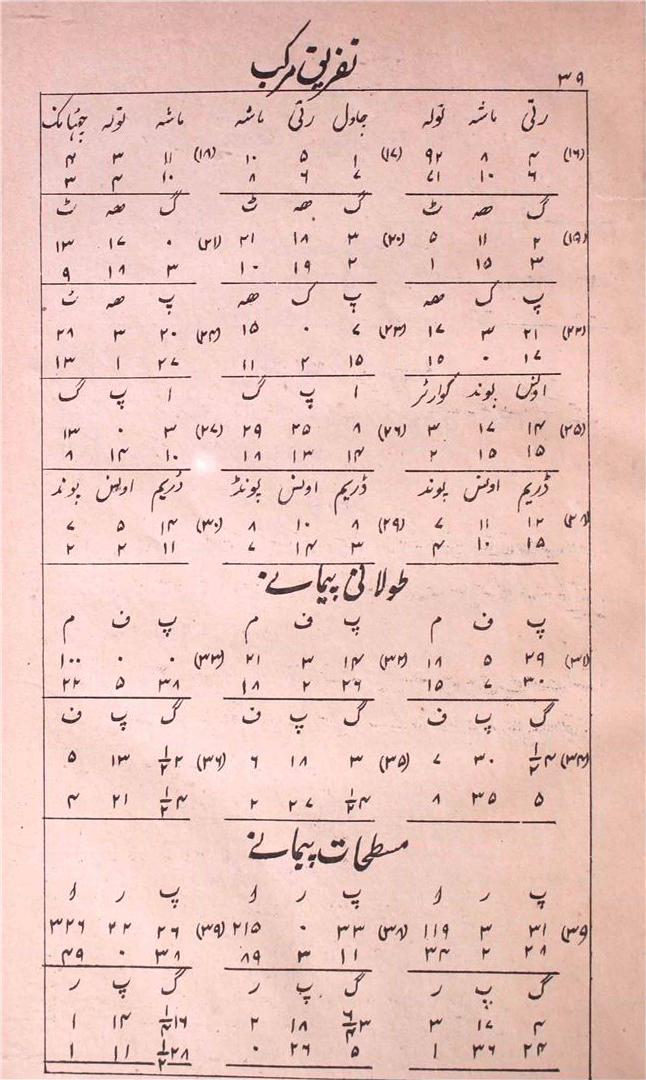 ۳۹
تفریق مرکب
رتی ماشہ تولہ چاول رتی ماشہ ماشہ تولہ چھٹانک
(۱۶) ۴ ۸ ۹۲ (۱۷) ۱ ۵ ۱۰ (۱۸) ۱۱ ۳ ۴
۶ ۱۰ ۷۱ ۷ ۶ ۸ ۱۰ ۴ ۳
گ ھ ٹ گ ھ ٹ گ ھ ٹ
(۱۹) ۲ ۱۱ ۵ (۲۰) ۳ ۱۸ ۲۱ (۲۱) ۰ ۱۷ ۱۳
۳ ۱۵ ۱ ۲ ۱۹ ۱۰ ۳ ۱۸ ۹
پ گ ھ پ گ ھ پ ھ ٹ
(۲۲) ۲۱ ۳ ۱۷ (۲۳) ۷ ۰ ۱۵ (۲۴) ۲۰ ۳ ۲۸
۱۷ ۰ ۱۵ ۱۵ ۲ ۱۱ ۲۷ ۱ ۱۳
اونس پوند کوارٹر ا پ گ ا پ گ
(۲۵) ۱۴ ۱۷ ۳ (۲۶) ۸ ۲۵ ۲۹ (۲۷) ۳ ۰ ۱۳
۱۵ ۱۵ ۲ ۱۴ ۱۳ ۱۸ ۱۰ ۱۴ ۸
ڈریم اونس پوند ڈریم اونس پونڈ ڈریم اونس پوند
(۲۸) ۱۲ ۱۱ ۷ (۲۹) ۸ ۱۰ ۸ (۳۰) ۱۴ ۵ ۷
۱۵ ۱۰ ۴ ۳ ۱۴ ۷ ۱۱ ۲ ۲
طولانی پیمانے۔
پ ف م پ ف م پ ف م
(۳۱) ۲۹ ۵ ۱۸ (۳۲) ۱۴ ۳ ۲۱ (۳۳) ۰ ۰ ۱۰۰
۳۰ ۷ ۱۵ ۲۶ ۲ ۱۸ ۳۸ ۵ ۲۲
گ پ ف گ پ ف گ پ ف
(۳۴) ۴ ۱/۲ ۳۰ ۷ (۳۵) ۳ ۱۸ ۶ (۳۶) ۲ ۱/۲ ۱۳ ۵
۵ ۳۵ ۸ ۴ ۱/۲ ۲۷ ۲ ۴ ۱/۲ ۲۱ ۴
مسطحات پیمانے
پ ر ا پ ر ا پ ر ا
(۳۹ ۳۱ ۳ ۱۱۹ (۳۸) ۳۳ ۰ ۲۱۵ (۳۹) ۲۶ ۲۲ ۳۲۶
۲۸ ۲ ۳۴ ۱۱ ۳ ۸۹ ۳۸ ۰ ۴۹
گ پ ر گ پ ر گ پ ر
۴ ۱۷ ۳ ۱۸ ۲ ۱۶ ۱/۴ ۱۴ ۱
۲۴ ۳۶ ۱ ۵ ۲۶ ۰ ۲۸ ۱/۲ ۱۱ ۱